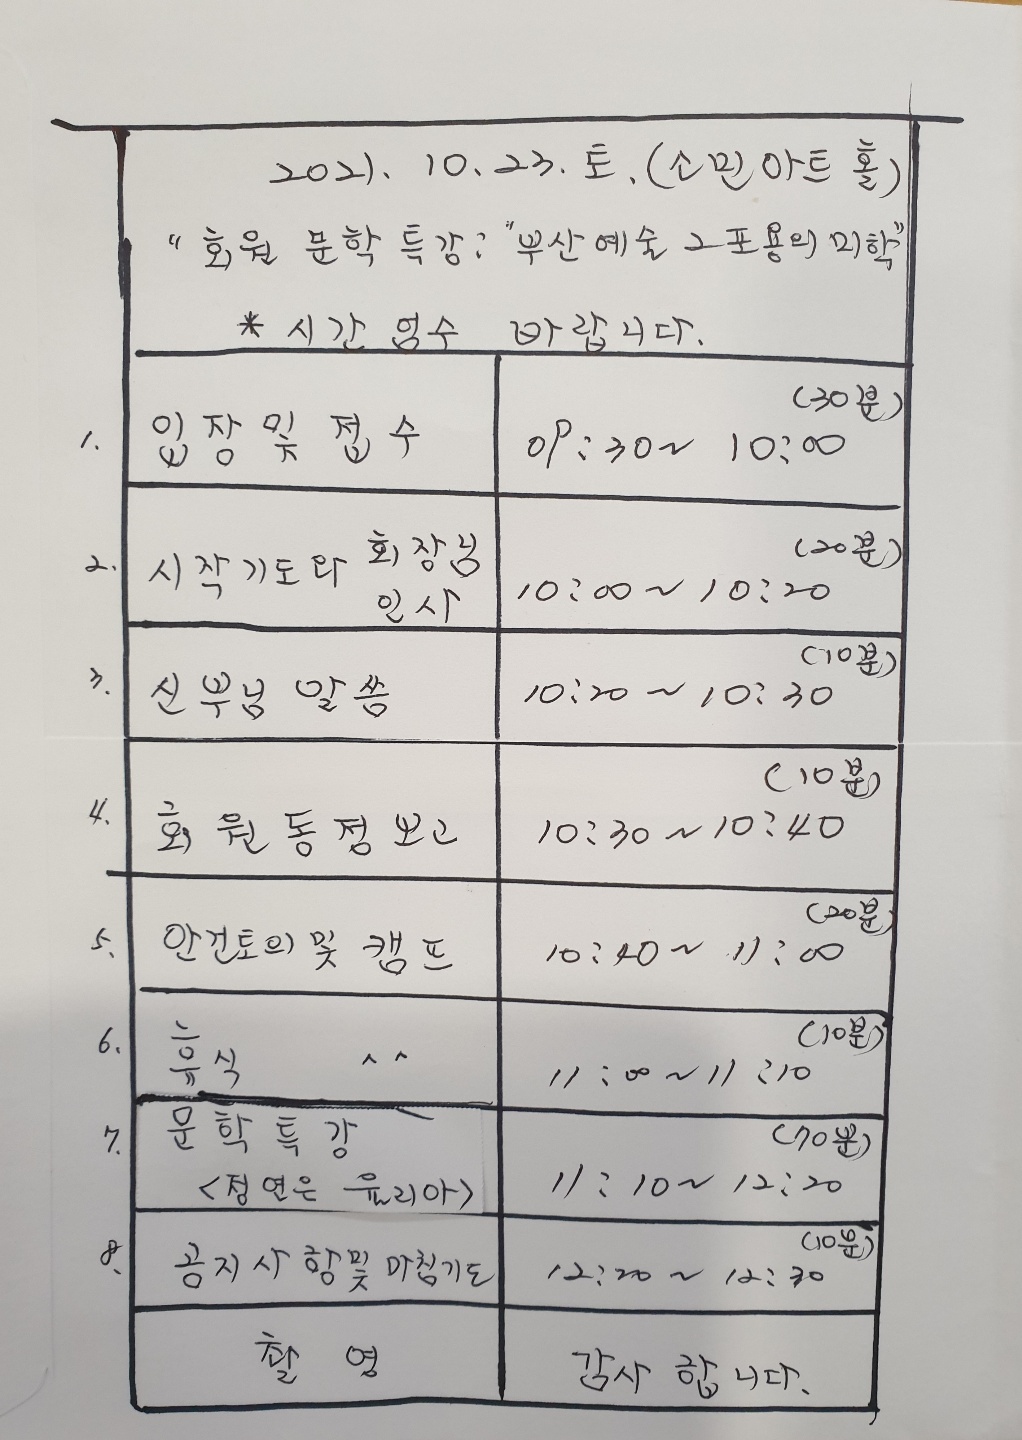 2021. 10. 23. 토. (소민아트홀)
"회원 문학 특강: "부산예술 그 포용의 미학"
* 시간 엄수 바랍니다.
1. 입장 및 접수 09:30~ 10:00 (30분)
2. 시작기도와 회장님 인사 10:00~ 10:20 (20분)
3. 신부님 말씀 10:20 ~ 10:30 (10분)
4. 회원동정보고 10:30 ~ 10:40 (10분)
5. 안건토의 및 캠프 10:40 ~ 11:00 (20분)
6. 휴식 ^^ 11:00 ~ 11:10 (10분)
7. 문학특강 (70분)
<정연은 유리아> 11:10~ 12:20
8. 공지사항및 마침기도 12:20 ~ 12:30 (10분)
촬영 감사합니다.